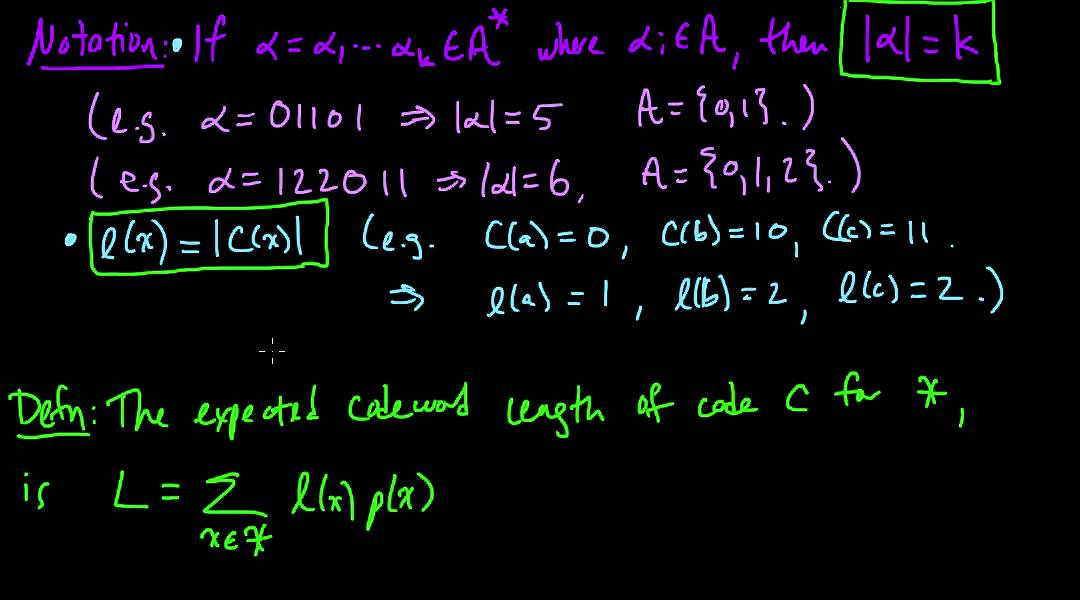 Notation: • If α = α₁ ⋯ αₖ ∈ A* where αᵢ ∈ A, then |α| = k
(e.g. α = 01101 ⇒ |α| = 5 A = {0,1}.)
(e.g. α = 122011 ⇒ |α| = 6, A = {0,1,2}.)
• ℓ(x) = |C(x)| (e.g. C(a) = 0, C(b) = 10, C(c) = 11.
⇒ ℓ(a) = 1, ℓ(b) = 2, ℓ(c) = 2.)
Defn: The expected codeword length of code C for 𝒳,
is L = ∑ ℓ(x) p(x)
x ∈ 𝒳